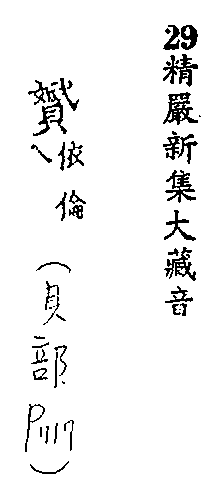 29精嚴新集大藏音
贇依倫(貝部P1117)